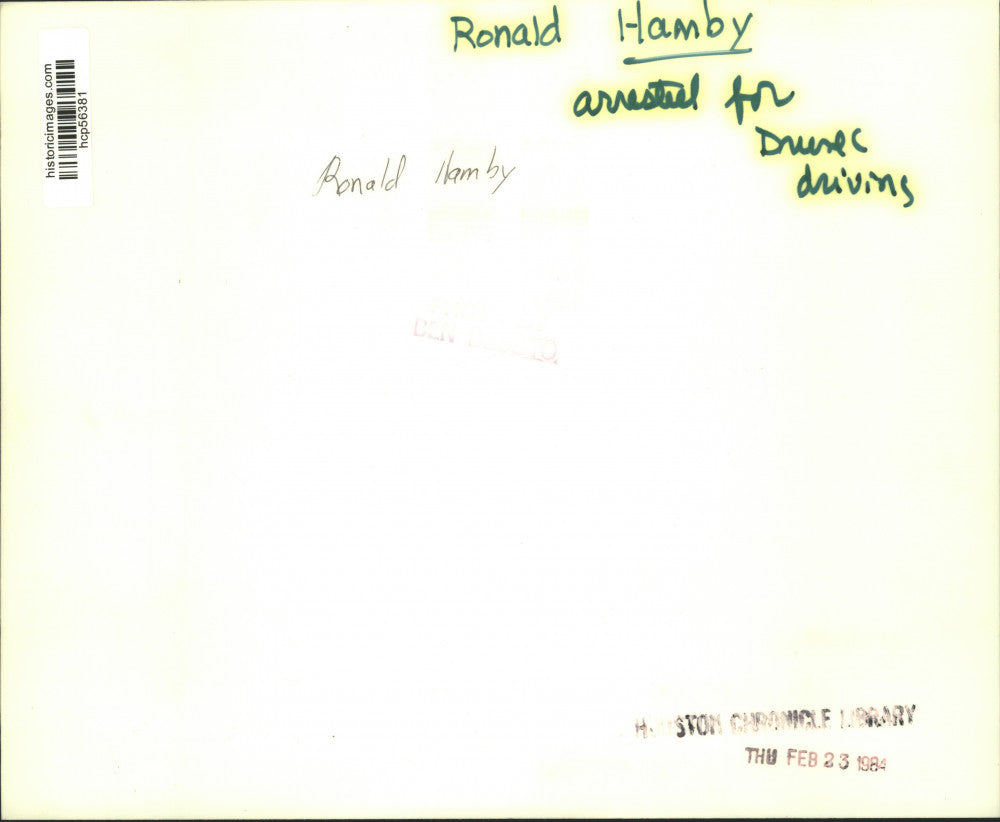 Ronald Hamby
arrested for
Drunk
driving
historicimages.com
hcp56381
Ronald Hamby
BEN
HOUSTON CHRONICLE LIBRARY
THU FEB 23 1984